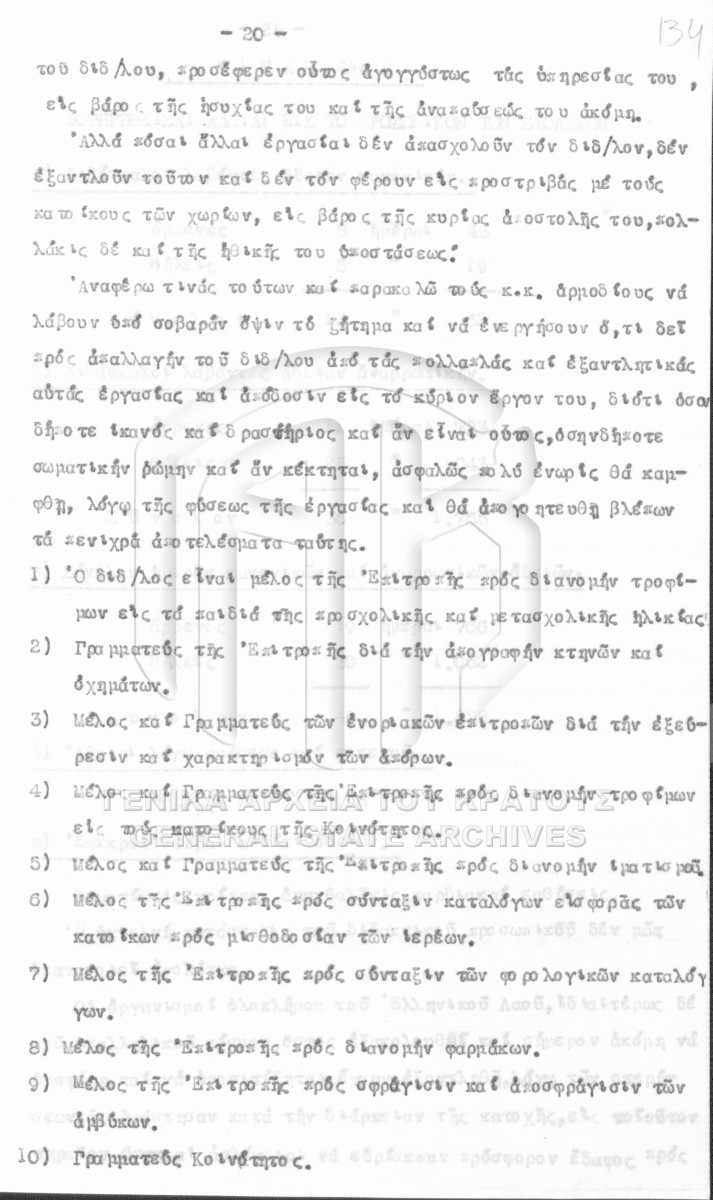 - 20 -
134
τοῦ διδ/λου, προσέφερεν οὗτος ἀγογγύστως τάς ὑπηρεσίας του,
εἰς βάρος τῆς ἡσυχίας του καί τῆς ἀναπαύσεώς του ἀκόμη.
Ἀλλά πόσαι ἄλλαι ἐργασίαι δέν ἀπασχολοῦν τόν διδ/λον,δέν
ἐξαντλοῦν τοῦτον καί δέν τόν φέρουν εἰς προστριβάς μέ τούς
κατοίκους τῶν χωρίων, εἰς βάρος τῆς κυρίας ἀποστολῆς του,πολ-
λάκις δέ καί τῆς ἠθικῆς του ὑποστάσεως!
Ἀναφέρω τινάς τούτων καί παρακαλῶ τούς κ.κ. ἁρμοδίους νά
λάβουν ὑπό σοβαράν ὄψιν τό ζήτημα καί νά ἐνεργήσουν ὅ,τι δεῖ
πρός ἀπαλλαγήν τοῦ διδ/λου ἀπό τάς πολλαπλάς καί ἐξαντλητικάς
αὐτάς ἐργασίας καί ἀπόδοσιν εἰς τό κύριον ἔργον του, διότι ὅσον
δήποτε ἱκανός καί δραστήριος καί ἄν εἶναι οὗτος,ὅσηνδήποτε
σωματικήν ρώμην καί ἄν κέκτηται, ἀσφαλῶς πολύ ἐνωρίς θά καμ-
φθῇ, λόγῳ τῆς φύσεως τῆς ἐργασίας καί θά ἀπογοητευθῇ βλέπων
τά πενιχρά ἀποτελέσματα ταύτης.
1) Ὁ διδ/λος εἶναι μέλος τῆς Ἐπιτροπῆς πρός διανομήν τροφί-
μων εἰς τά παιδιά τῆς προσχολικῆς καί μετασχολικῆς ἡλικίας
2) Γραμματεύς τῆς Ἐπιτροπῆς διά τήν ἀπογραφήν κτηνῶν καί
ὀχημάτων.
3) Μέλος καί Γραμματεύς τῶν ἐνοριακῶν ἐπιτροπῶν διά τήν ἐξεύ-
ρεσιν καί χαρακτηρισμόν τῶν ἀπόρων.
4) Μέλος καί Γραμματεύς τῆς Ἐπιτροπῆς πρός διανομήν τροφίμων
εἰς τούς κατοίκους τῆς Κοινότητος.
ΓΕΝΙΚΑ ΑΡΧΕΙΑ ΤΟΥ ΚΡΑΤΟΥΣ
GENERAL STATE ARCHIVES
5) Μέλος καί Γραμματεύς τῆς Ἐπιτροπῆς πρός διανομήν ἱματισμοῦ.
6) Μέλος τῆς Ἐπιτροπῆς πρός σύνταξιν καταλόγων εἰσφορᾶς τῶν
κατοίκων πρός μισθοδοσίαν τῶν ἱερέων.
7) Μέλος τῆς Ἐπιτροπῆς πρός σύνταξιν τῶν φορολογικῶν καταλόγ
γων.
8) Μέλος τῆς Ἐπιτροπῆς πρός διανομήν φαρμάκων.
9) Μέλος τῆς Ἐπιτροπῆς πρός σφράγισιν καί ἀποσφράγισιν τῶν
ἀμβύκων.
10) Γραμματεύς Κοινότητος.